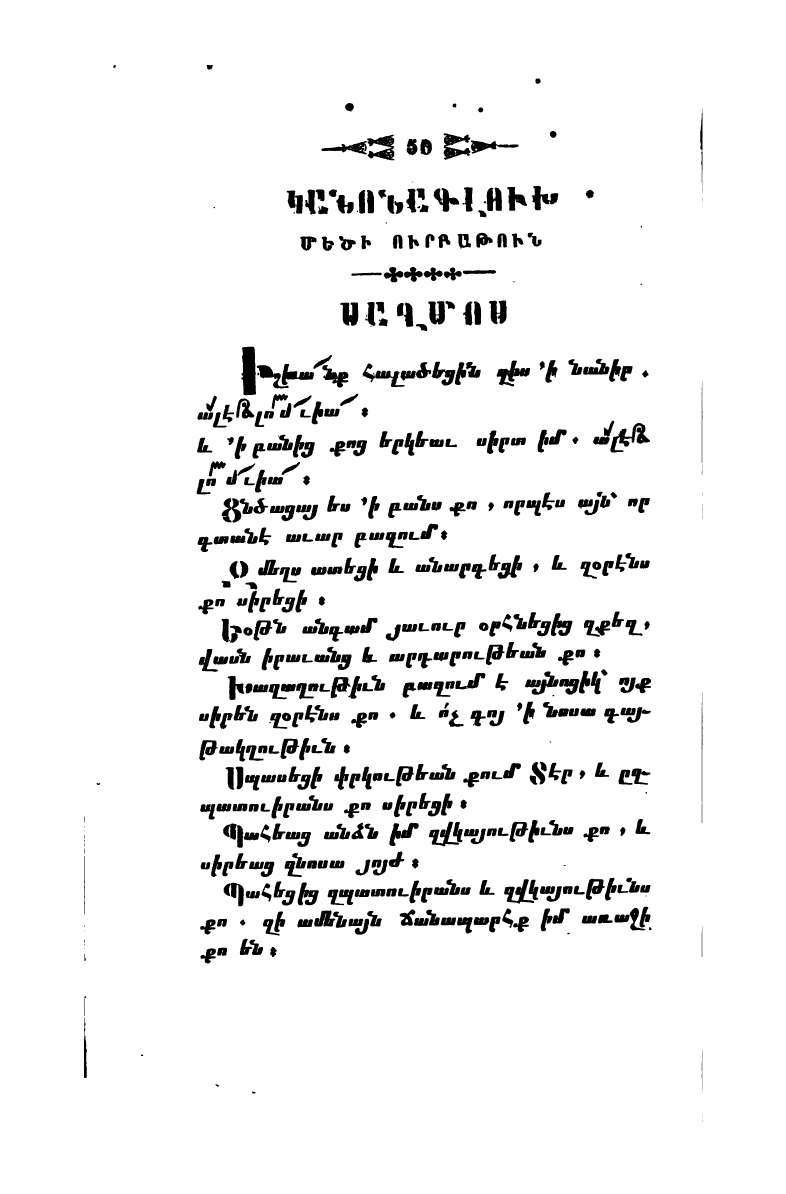 50
ԿԱՆՈՆԱԳԼՈՒԽ
ՄԵԾԻ ՈՒՐԲԱԹՈՒՆ
ՍԱՂՄՈՍ
Իշխա՜նք Հալածեցին զիս ՚ի նանիր .
ա՛լէլո՜ւ՜իա՜ ։
և ՚ի բանից քոց երկեաւ սիրտ իմ . ա՛լէ
լո՜ւ՜իա՜ ։
Ցնծացայ ես ՚ի բանս քո , որպէս այն՝ որ
գտանէ աւար բազում ։
Զմեղս ատեցի և անարգեցի , և զօրէնս
քո սիրեցի ։
Եօթն անգամ յաւուր օրհնեցից զքեզ ,
վասն իրաւանց և արդարութեան քո ։
Խաղաղութիւն բազում է այնոցիկ՝ ոյք
սիրեն զօրէնս քո . և ո՛չ գոյ ՚ի նոսա գայ-
թակղութիւն ։
Սպասեցի փրկութեան քում Տէր , և ըզ-
պատուիրանս քո սիրեցի ։
Պահեաց անձն իմ զվկայութիւնս քո , և
սիրեաց զնոսա յոյժ ։
Պահեցից զպատուիրանս և զվկայութիւնս
քո . զի ամենայն ճանապարհք իմ առաջի
քո են ։